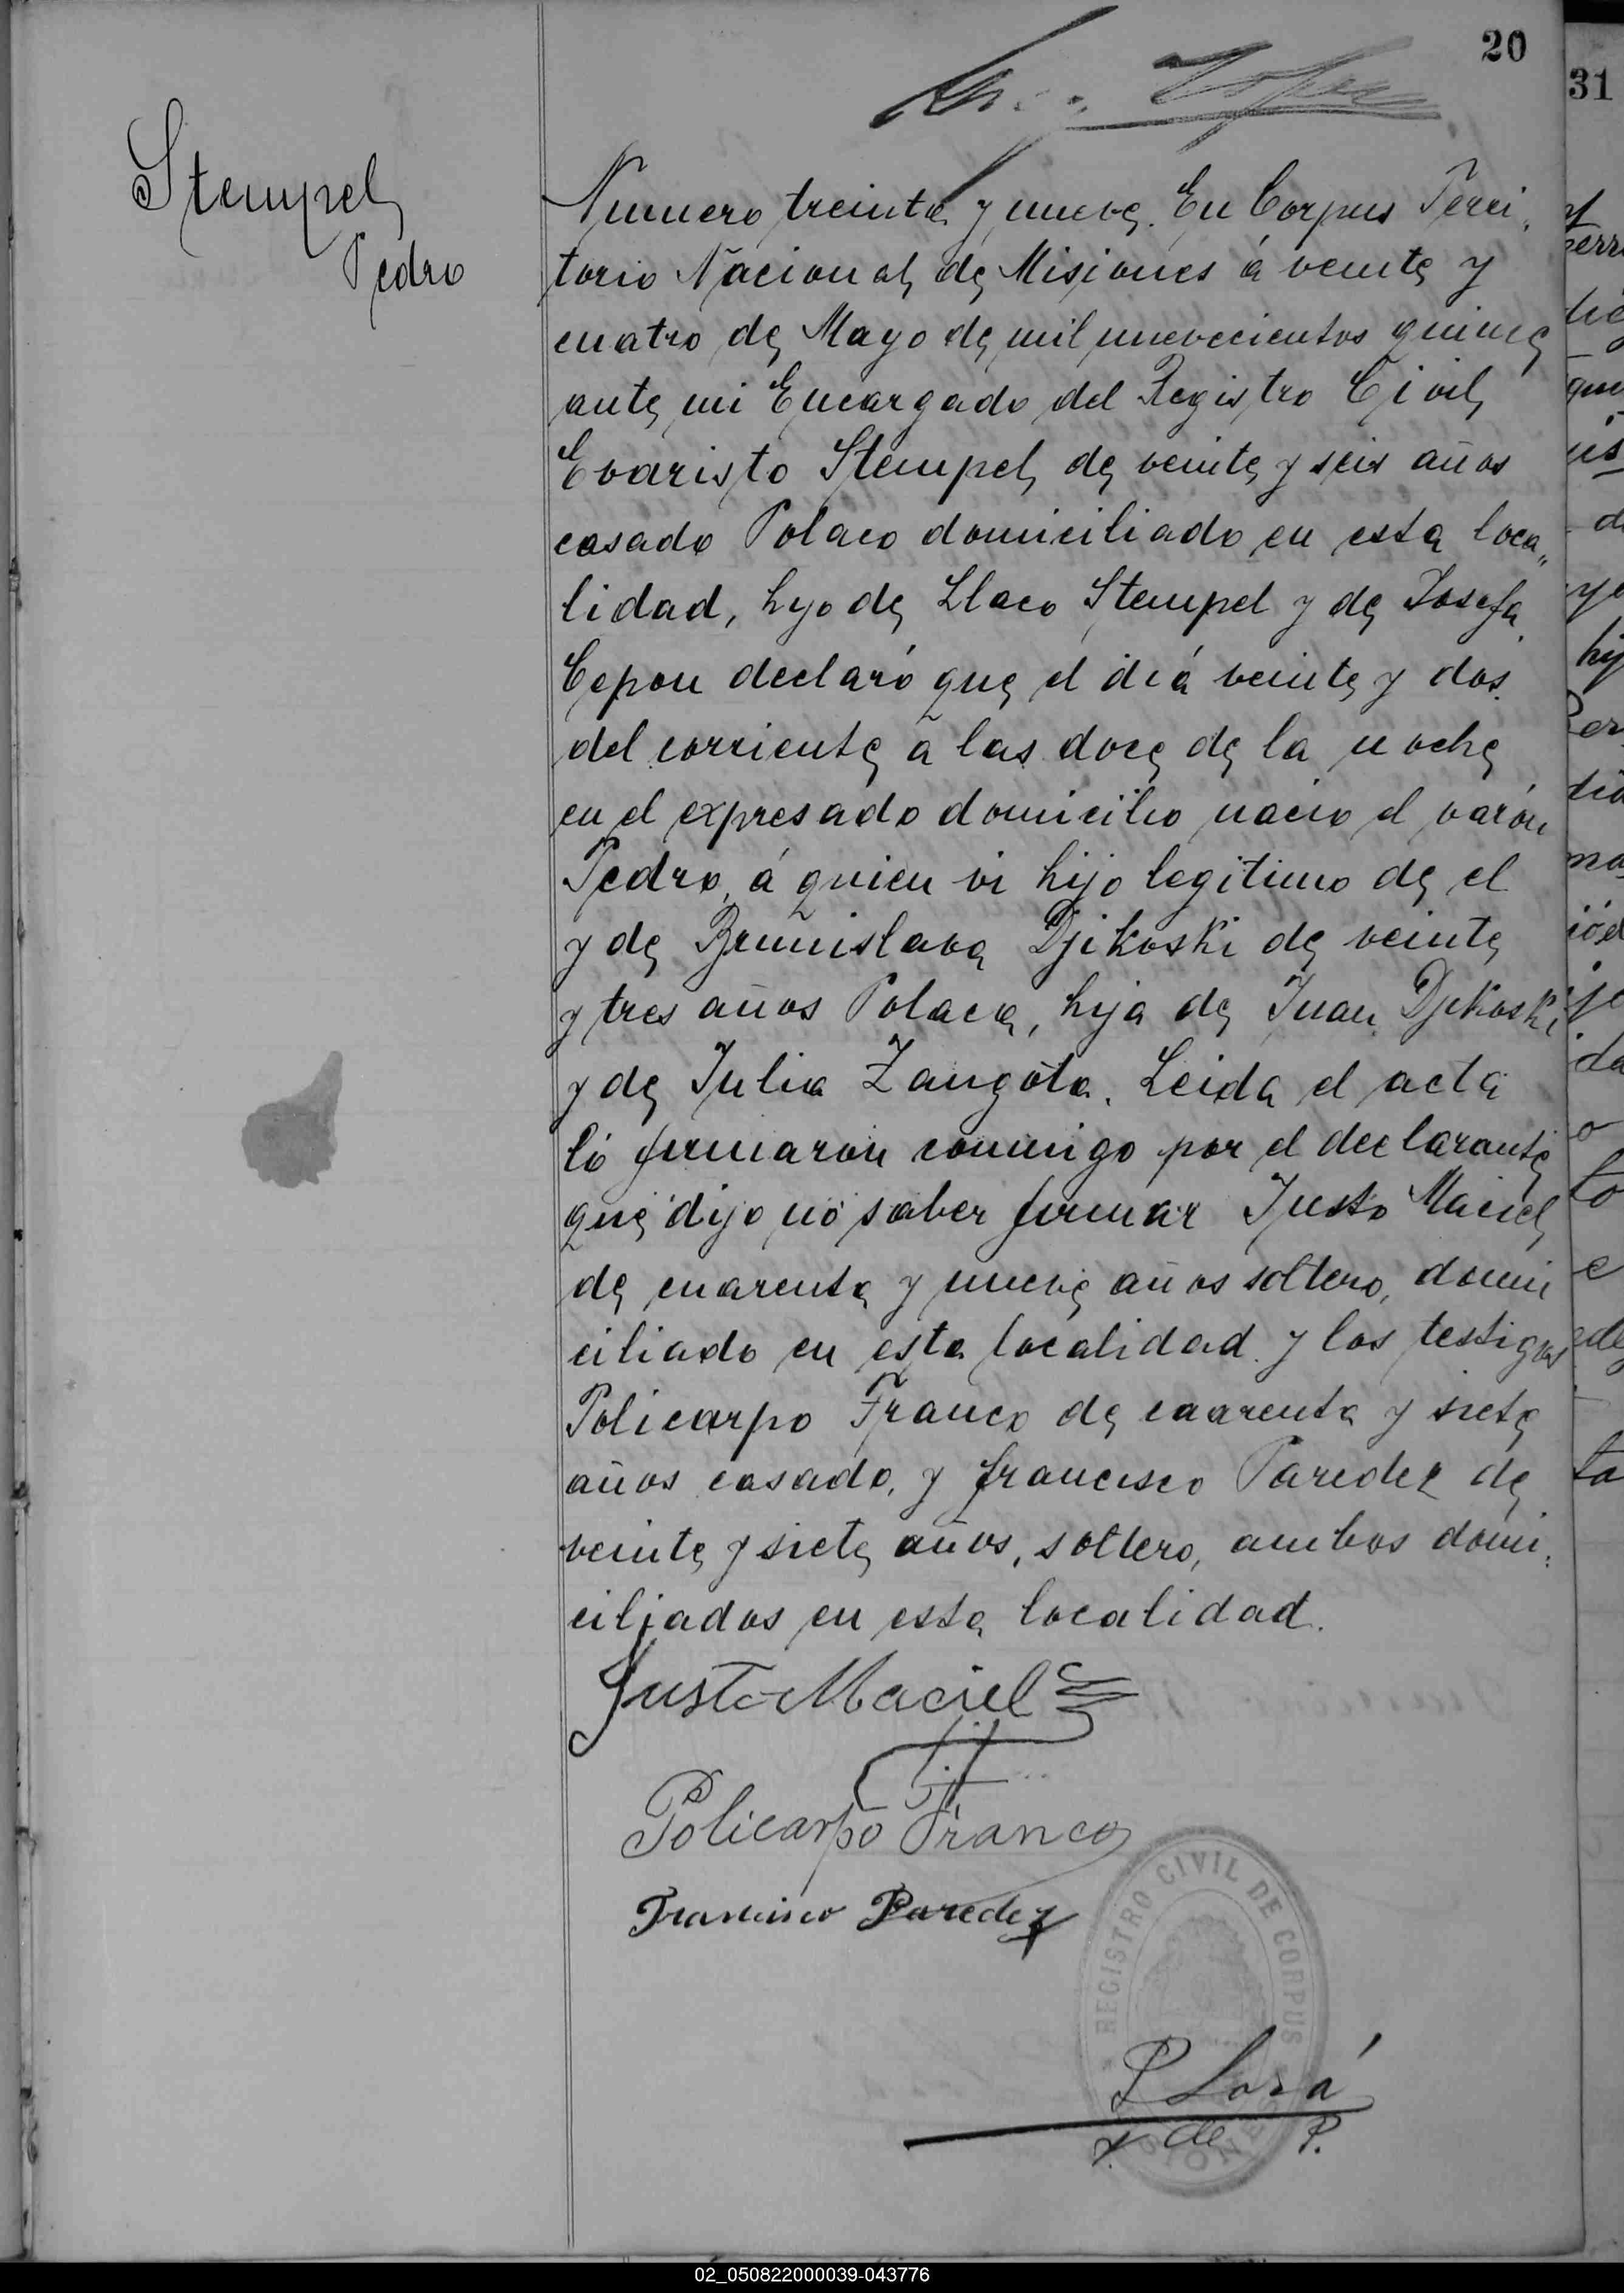 20
31
Stempel
Pedro
Numero treinta y nueve. En Corpus Terri,
torio Nacional de Misiones á veinte y
cuatro de Mayo de mil nuevecientos quince
ante mi Encargado del Registro Civil
Evaristo Stempel de veinte y seis años
casado Polaco domiciliado en esta loca„
lidad, hijo de Llaco Stempel y de Josefa
Cepon declaró que el diá veinte y dos
del corriente a las doce de la noche
en el expresado domicilio nacio el varón
Pedro, á quien vi hijo legitimo de el
y de Brunislava Djikoski de veinte
y tres años Polaca, hija de Juan Djikoski
y de Julia Zangota. Leida el acta
lo firmaron conmigo por el declarante
que dijo no saber firmar Justo Maciel
de cuarenta y nueve años soltero, domi
ciliado en esta localidad y los testigos
Policarpo Franco de cuarenta y siete
años casado, y Francisco Paredez de
veinte y siete años, soltero, ambos domi:
ciliados en esta localidad.
Justo Maciel
Policarpo Franco
Francisco Paredez
REGISTRO CIVIL DE CORPUS
MISIONES
P Lorá
J. de P.
02_050822000039-043776